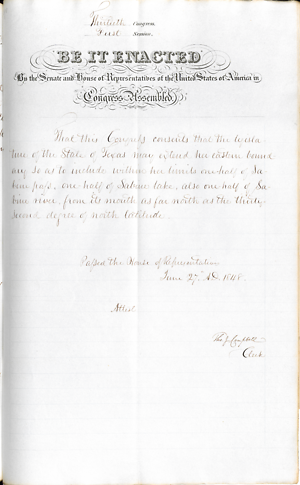 Thirtieth Congress,
First Session,
BE IT ENACTED
By the Senate and House of Representatives of the United States of America in
Congress Assembled,
That this Congress consents that the legisla-
ture of the State of Texas may extend her eastern bound-
ary so as to include within her limits one half of Sa-
bine pass, one half of Sabine lake, also one half of Sa-
bine river, from its mouth as far north as the thirty-
second degree of north latitude.
Passed the House of Representatives
June 27th AD 1848.
Attest
Tho J Campbell
Clerk